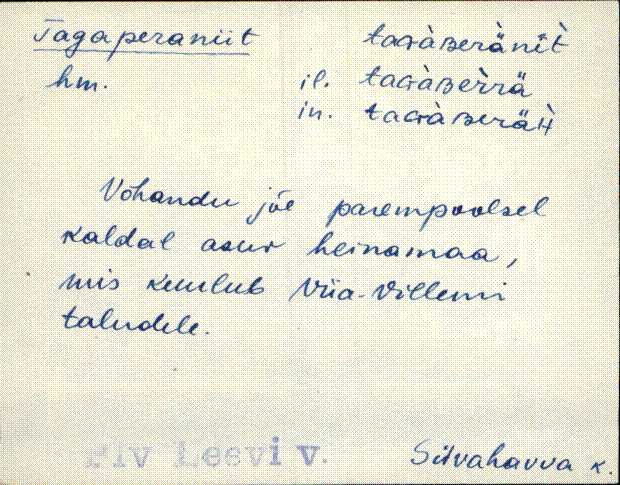 Tagaperaniit taGàʙeränìt̀
hm. il. taGàʙèrrä
in. taGàʙeräH
Võhandu jõe parempoolsel
kaldal asuv heinamaa,
mis kuulub Viia-Villemi
taludele.
Plv Leevi v. Siivahavva k.